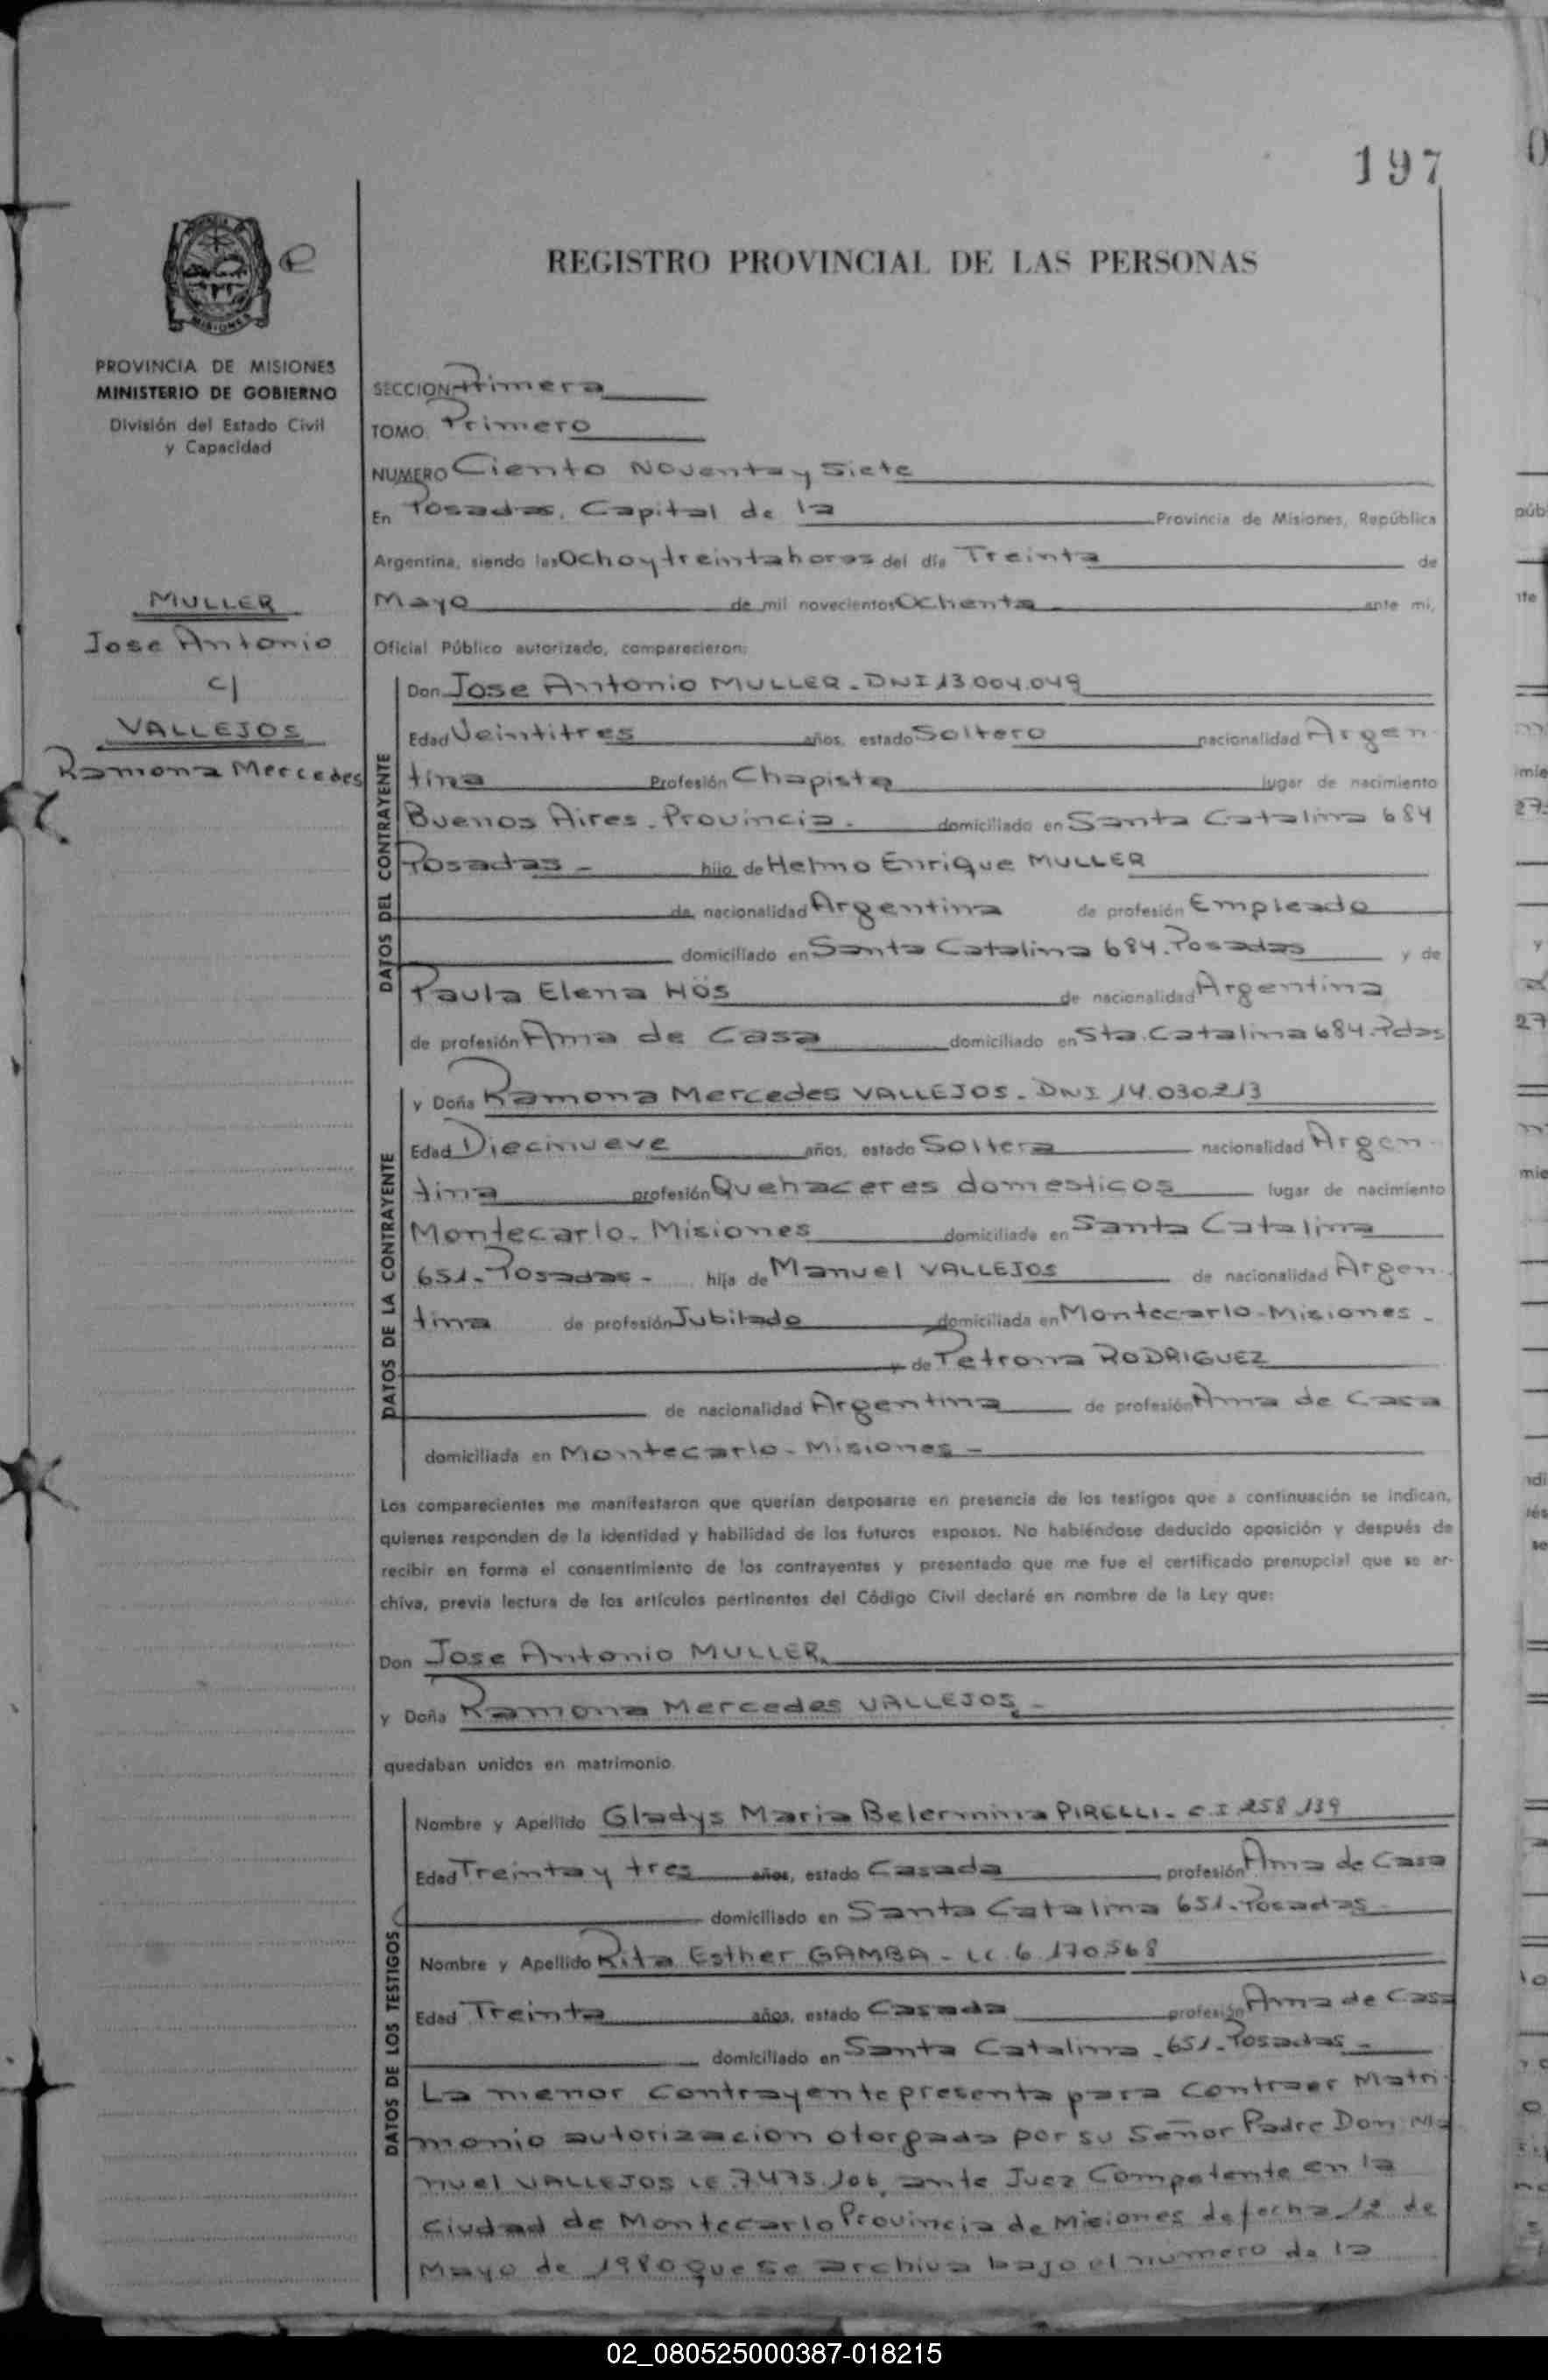 197
REGISTRO PROVINCIAL DE LAS PERSONAS
MISIONES
PROVINCIA DE MISIONES
MINISTERIO DE GOBIERNO
División del Estado Civil
y Capacidad
MULLER
Jose Antonio
c/
VALLEJOS
Ramona Mercedes
SECCION Primera
TOMO Primero
NUMERO Ciento Noventa y Siete
En Posadas, Capital de la Provincia de Misiones, República
Argentina, siendo las Ocho y treinta horas del día Treinta de
Mayo de mil novecientos Ochenta - ante mí,
Oficial Público autorizado, comparecieron:
DATOS DEL CONTRAYENTE
Don Jose Antonio MULLER - DNI 13.004.049
Edad Veintitres años, estado Soltero nacionalidad Argen-
tina Profesión Chapista lugar de nacimiento
Buenos Aires. Provincia. domiciliado en Santa Catalina 684
Posadas - hijo de Helmo Enrique MULLER
de nacionalidad Argentina de profesión Empleado
domiciliado en Santa Catalina 684. Posadas y de
Paula Elena HÖS de nacionalidad Argentina
de profesión Ama de Casa domiciliado en Sta. Catalina 684. Pdas
DATOS DE LA CONTRAYENTE
y Doña Ramona Mercedes VALLEJOS - DNI 14.030.213
Edad Diecinueve años, estado Soltera nacionalidad Argen-
tina profesión Quehaceres domesticos lugar de nacimiento
Montecarlo - Misiones domiciliada en Santa Catalina
651 - Posadas - hija de Manuel VALLEJOS de nacionalidad Argen-
tina de profesión Jubilado domiciliada en Montecarlo - Misiones -
y de Petrona RODRIGUEZ
de nacionalidad Argentina de profesión Ama de Casa
domiciliada en Montecarlo - Misiones -
Los comparecientes me manifestaron que querían desposarse en presencia de los testigos que a continuación se indican,
quienes responden de la identidad y habilidad de los futuros esposos. No habiéndose deducido oposición y después de
recibir en forma el consentimiento de los contrayentes y presentado que me fue el certificado prenupcial que se ar-
chiva, previa lectura de los artículos pertinentes del Código Civil declaré en nombre de la Ley que:
Don Jose Antonio MULLER.
y Doña Ramona Mercedes VALLEJOS. -
quedaban unidos en matrimonio.
DATOS DE LOS TESTIGOS
Nombre y Apellido Gladys Maria Belermina PIRELLI - C.I. 258.139
Edad Treinta y tres años, estado Casada profesión Ama de Casa
domiciliado en Santa Catalina 651 - Posadas -
Nombre y Apellido Rita Esther GAMBA - LC. 6.170.568
Edad Treinta años, estado Casada profesión Ama de Casa
domiciliado en Santa Catalina - 651 - Posadas -
La menor contrayente presenta para contraer Matri-
monio autorizacion otorgada por su Señor Padre Don Ma
nuel VALLEJOS LE. 7.475.106, ante Juez Competente en la
Ciudad de Montecarlo Provincia de Misiones de fecha 12 de
Mayo de 1980 que se archiva bajo el numero de la
02_080525000387-018215